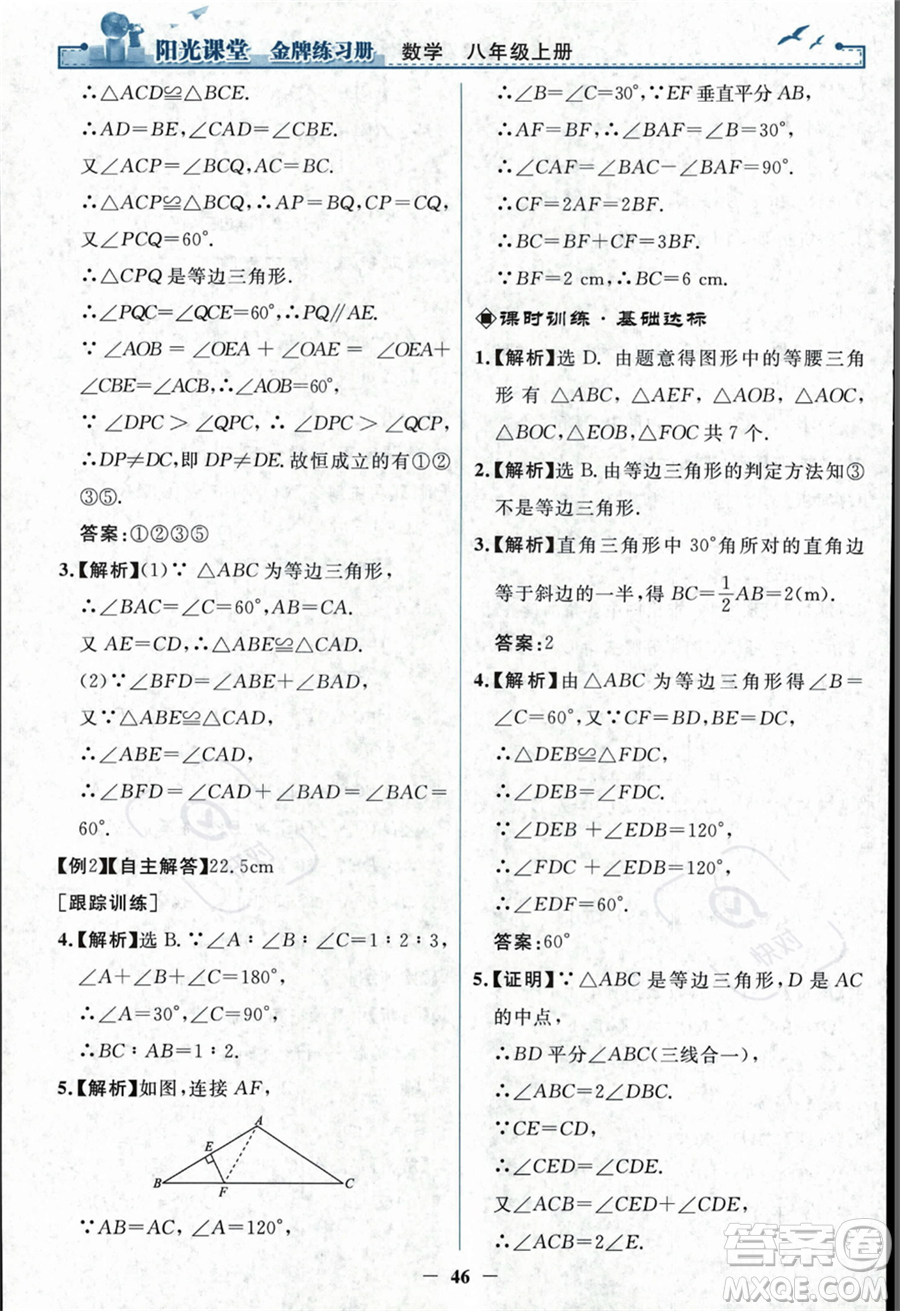 阳光课堂 金牌练习册 数学 八年级上册
∴△ACD≌△BCE.
∴AD=BE,∠CAD=∠CBE.
又∠ACP=∠BCQ,AC=BC.
∴△ACP≌△BCQ,∴AP=BQ,PC=QC.
又∠PCQ=60°.
∴△CPQ是等边三角形.
∴∠PQC=∠QCE=60°,∴PQ∥AE.
∵∠AOB=∠OEA+∠OAE=∠OEA+
∠CBE=∠ACB,∴∠AOB=60°,
∵∠DPC>∠QPC,∴∠DPC>∠QCP,
∴DP≠DC,即DP≠DE.故恒成立的有①②
③⑤.
答案:①②③⑤
3.【解析】(1)∵△ABC为等边三角形,
∴∠BAC=∠C=60°,AB=CA.
又AE=CD,∴△ABE≌△CAD.
(2)∵∠BFD=∠ABE+∠BAD,
又∵△ABE≌△CAD,
∴∠ABE=∠CAD,
∴∠BFD=∠CAD+∠BAD=∠BAC=
60°.
【例2】【自主解答】22.5cm
[跟踪训练]
4.【解析】选B.∵∠A∶∠B∶∠C=1∶2∶3,
∠A+∠B+∠C=180°,
∴∠A=30°,∠C=90°,
∴BC∶AB=1∶2.
5.【解析】如图,连接AF,
A
E
B
F
C
∵AB=AC,∠A=120°,
∴∠B=∠C=30°,∵EF垂直平分AB,
∴AF=BF,∠BAF=∠B=30°,
∴∠CAF=∠BAC-∠BAF=90°.
∴CF=2AF=2BF.
∴BC=BF+CF=3BF.
∵BF=2 cm,∴BC=6 cm.
课时训练·基础达标
1.【解析】选D. 由题意得图形中的等腰三角
形有△ABC,△AEF,△AOB,△AOC,
△BOC,△EOB,△FOC共7个.
2.【解析】选B.由等边三角形的判定方法知③
不是等边三角形.
3.【解析】直角三角形中30°角所对的直角边
等于斜边的一半,得BC=1/2AB=2(m).
答案:2
4.【解析】由△ABC为等边三角形得∠B=
∠C=60°,又∵CF=BD,BE=DC,
∴△DEB≌△FDC,
∴∠DEB=∠FDC.
∵∠DEB+∠EDB=120°,
∴∠FDC+∠EDB=120°,
∴∠EDF=60°.
答案:60°
5.【证明】∵△ABC是等边三角形,D是AC
的中点,
∴BD平分∠ABC(三线合一),
∴∠ABC=2∠DBC.
∵CE=CD,
∴∠CED=∠CDE.
又∵∠ACB=∠CED+∠CDE,
∴∠ACB=2∠E.
46
快对
答案圈
MXQE.COM